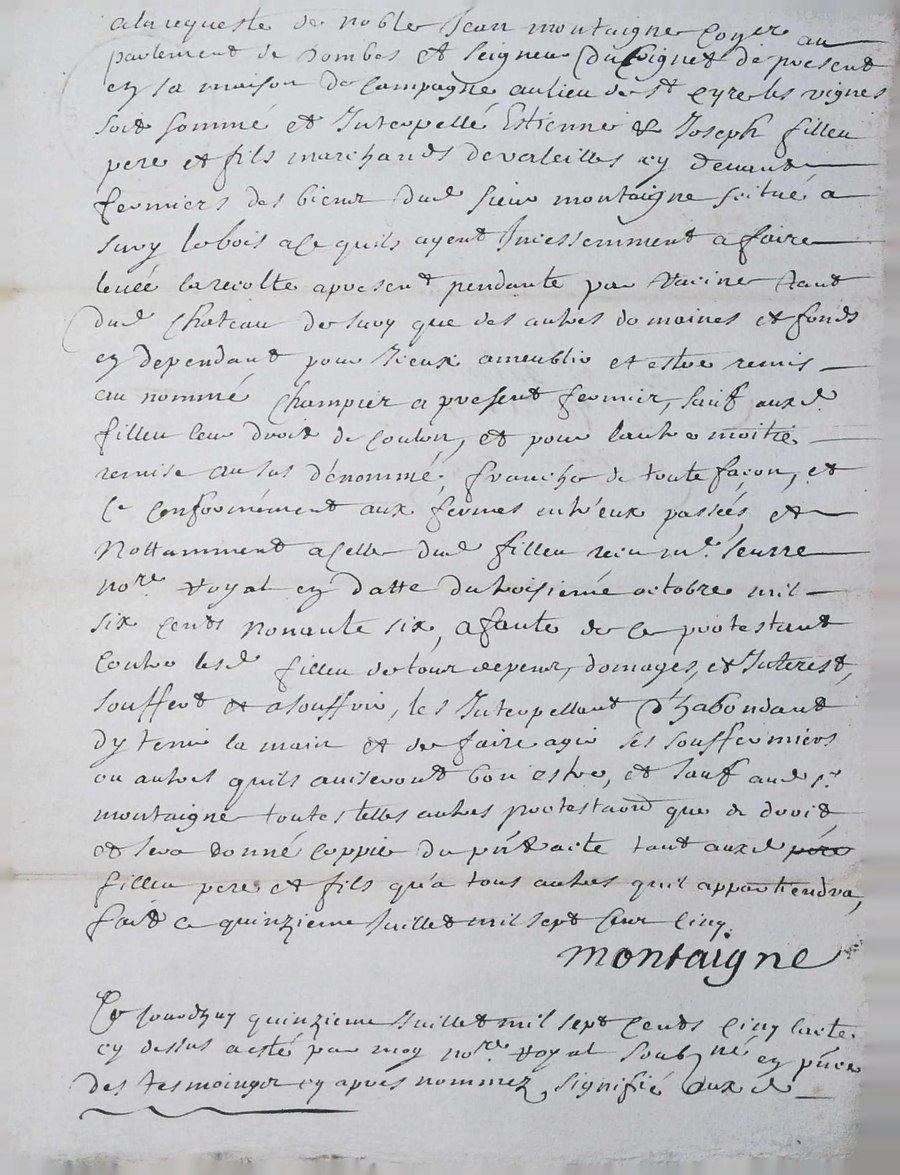 a la requeste de noble Jean montaigne Coner au
parlement de Dombes et Seigneur Du Poignet de present
en sa maison de Campagne au lieu de st Cyre les vignes
soit sommé et Interpellé Estienne & Joseph filleu
pere et fils marchands de valeilles cy devant
fermiers des biens dud sieur montaigne scitué a
Suvy le bois a ce quils ayent Incessemment a faire
levée la recolte apresent pendante par Racine tant
dud Chateau de Suvy que des autres domaines et fonds
en dependant pour Iceux ameublir et estre remis
au nommé Champier a present fermier, sauf auxd.
filleu leur droit de Coulon, et pour lautre moitié
remise au sus dénommé, franche de toute façon, et
Ce Conformément aux fermes entr'eux passées, et
Nottamment a Celle dud filleu reçu me. Seurre
nore. Royal en datte du troisieme octobre mil
six Cents Nonante six, a faute de Ce protestant
Contre lesd filleu de tour depens, domages, et Interest,
souffert et a souffrir, les Interpellant d'habondant
dy tenir la main et de faire agir ses souffermiers
ou autres quils aviseront bon estre, et sauf aud sr
montaigne toutes telles autres protestaon que de droit
et sera donné Coppie du pnt acte tant auxd pere
filleu pere et fils qu'a tous autres quil appartiendra,
fait ce quinzieme Juillet mil sept Cens Cinq.
montaigne
Ce Jourdhuy quinzieme Juillet mil sept Cents Cinq lacte
cy dessus a esté par moy nore. Royal soubzné en pnce
des tesmoings cy apres nommez signifié aux d